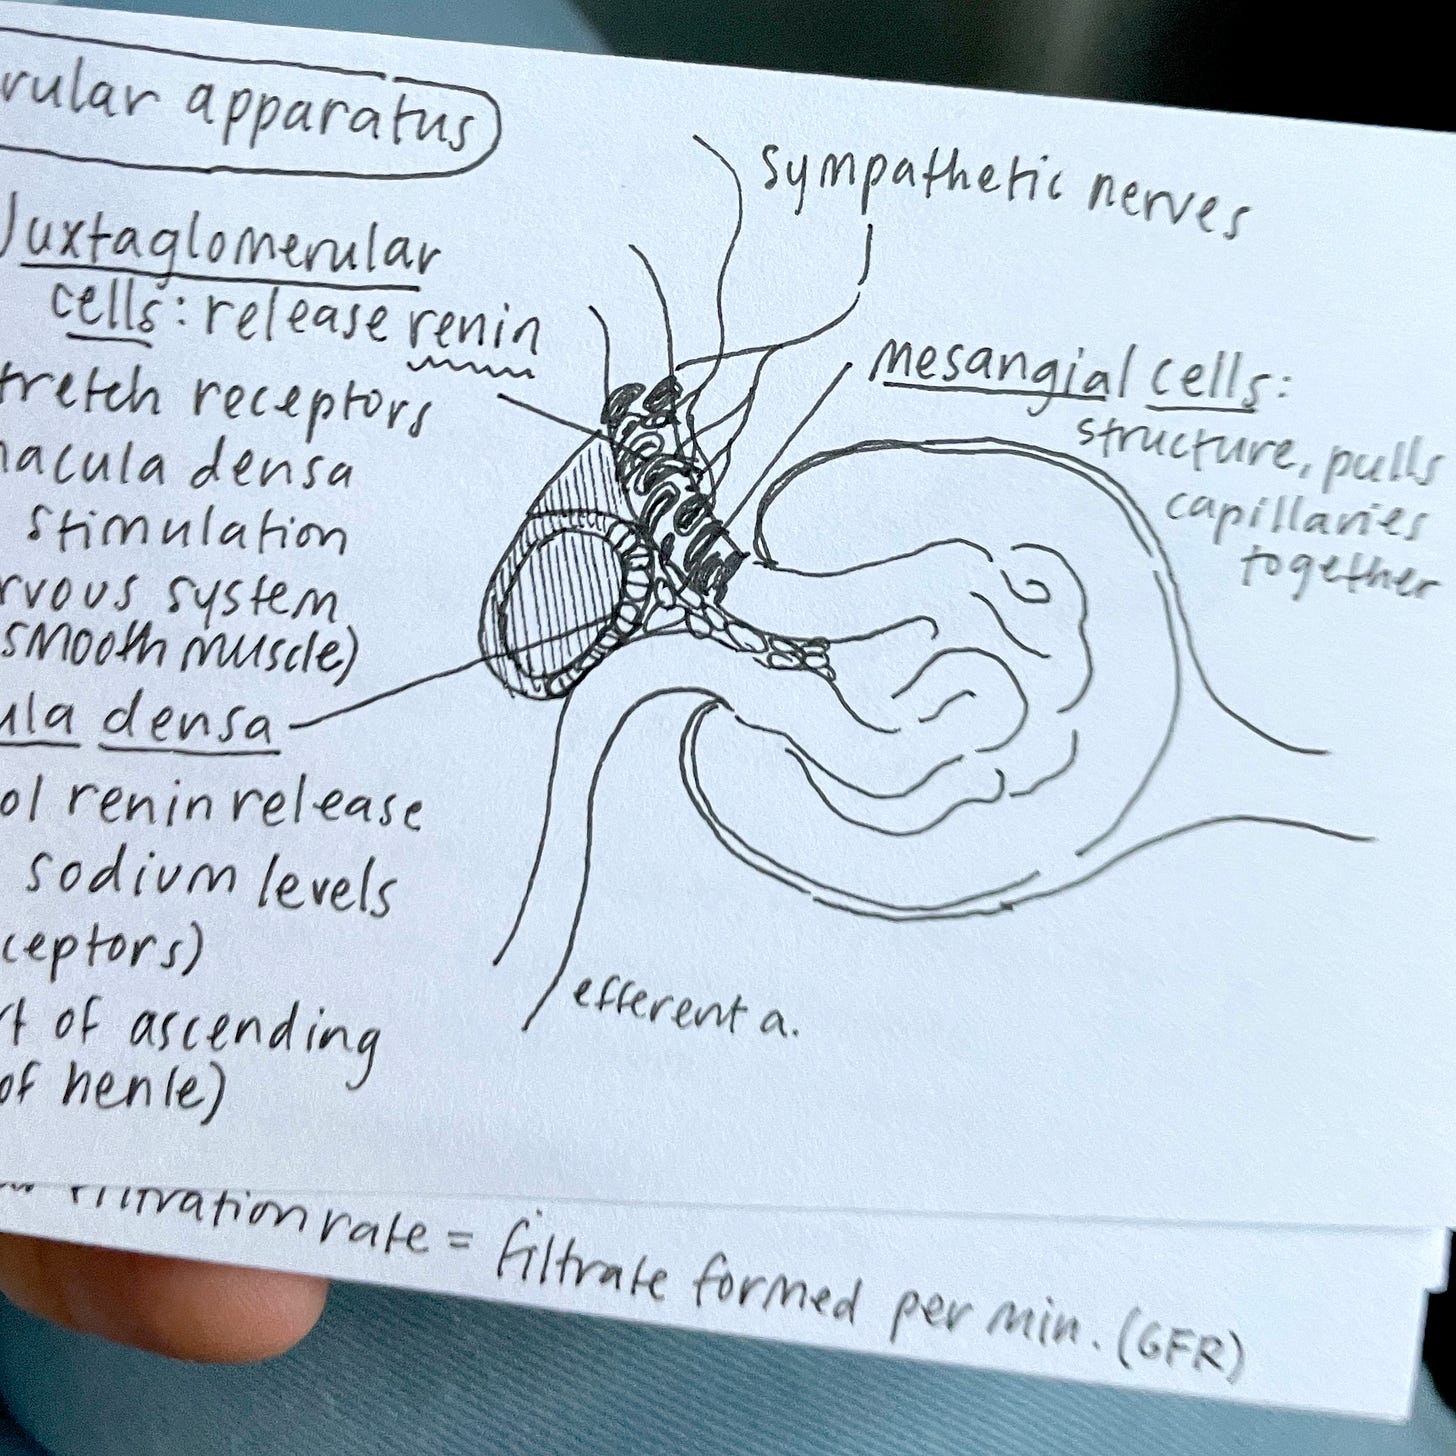 rular apparatus
Juxtaglomerular
cells: release renin
tretch receptors
acula densa
stimulation
rvous system
(smooth muscle)
ula densa
ol renin release
sodium levels
ceptors)
rt of ascending
of henle)
sympathetic nerves
mesangial cells:
structure, pulls
capillaries
together
efferent a.
filtration rate = filtrate formed per min. (GFR)